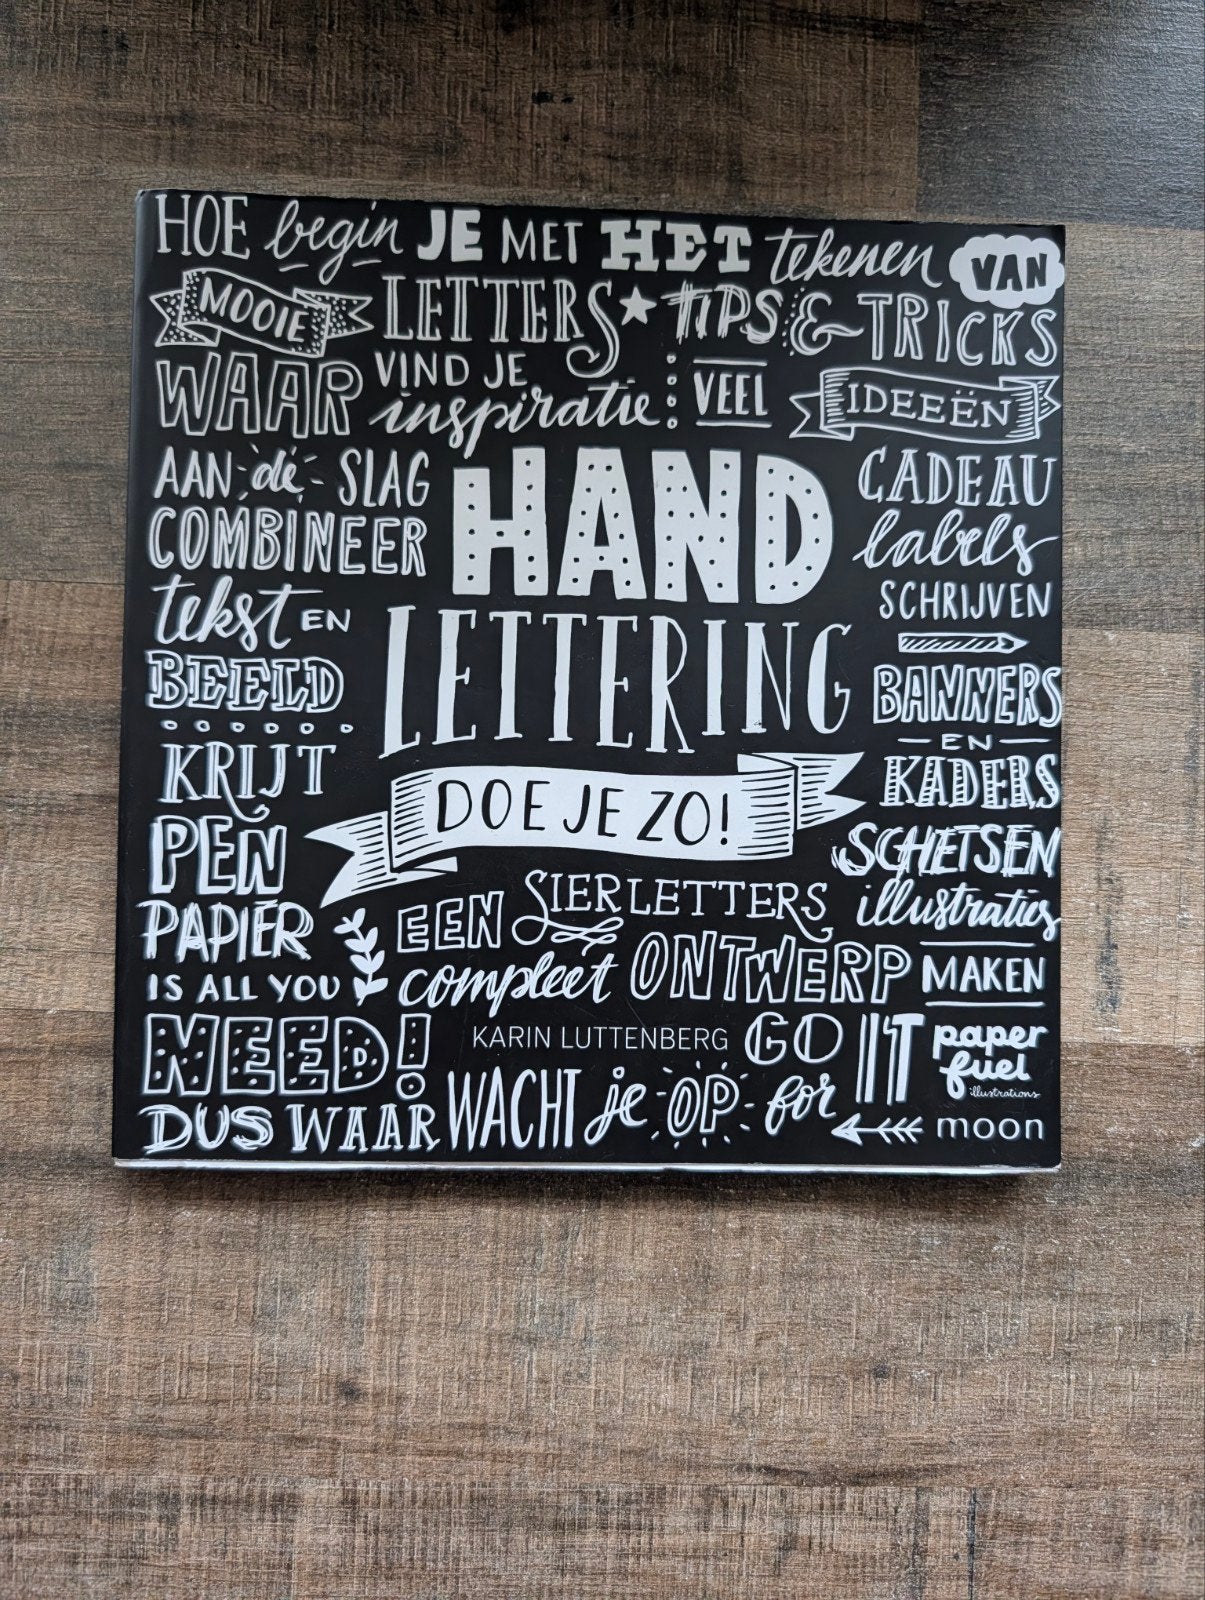 HOE begin JE MET HET tekenen VAN
MOOIE LETTERS TIPS & TRICKS
WAAR VIND JE inspiratie VEEL IDEEËN
AAN de SLAG
COMBINEER
tekst EN
BEELD
KRIJT
PEN
PAPIER
IS ALL YOU
NEED!
HAND
LETTERING
DOE JE ZO!
CADEAU
labels
SCHRIJVEN
BANNERS
EN
KADERS
SCHETSEN
illustraties
MAKEN
EEN SIERLETTERS
compleet ONTWERP
KARIN LUTTENBERG
DUS WAAR WACHT je OP GO for IT
paper
fuel
illustrations
moon